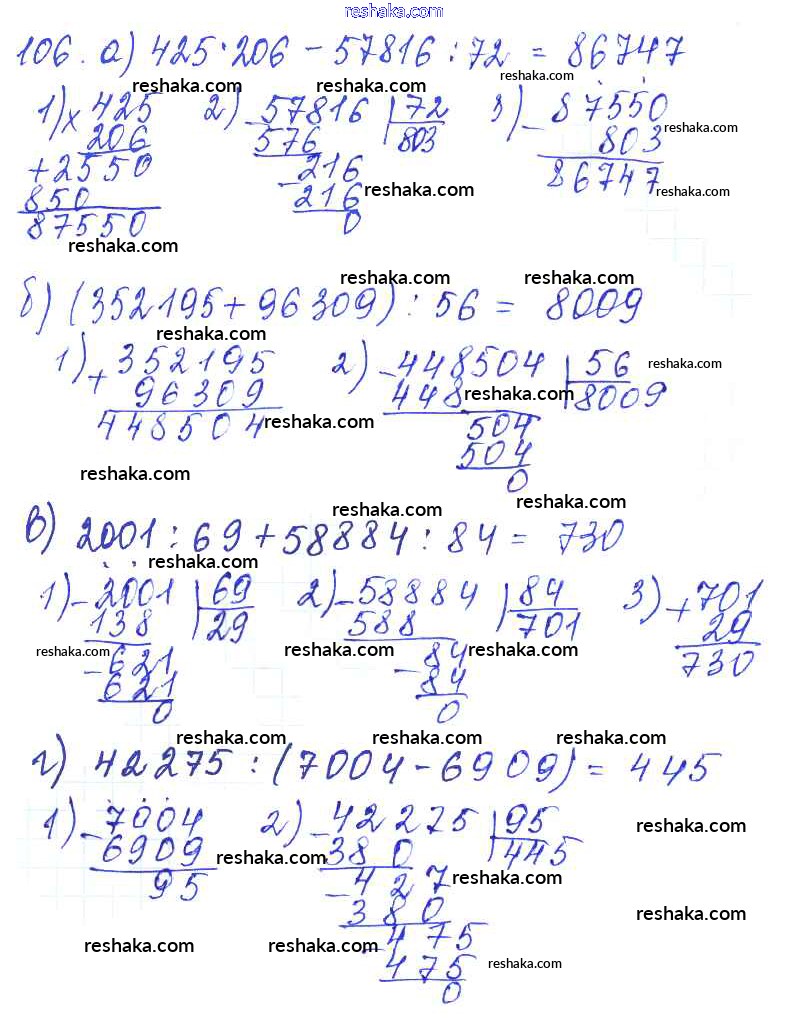 reshaka.com
106. а) 425·206 − 57816 : 72 = 86747
reshaka.com reshaka.com reshaka.com
1) × 425 2) − 57816 | 72 3) − 87550
206 576 803 803 reshaka.com
+2550 − 216 86747
850 216 reshaka.com reshaka.com
87550 0
reshaka.com
reshaka.com reshaka.com
б) (352195 + 96309) : 56 = 8009
reshaka.com
1) + 352195 2) − 448504 | 56 reshaka.com
96309 448 reshaka.com 8009
448504 reshaka.com 504
504
reshaka.com 0
reshaka.com reshaka.com
в) 2001 : 69 + 58884 : 84 = 730
reshaka.com reshaka.com
1) − 2001 | 69 2) − 58884 | 84 3) + 701
138 29 588 701 29
reshaka.com − 621 reshaka.com − 84 reshaka.com 730
621 84
0 0
reshaka.com reshaka.com reshaka.com
г) 42275 : (7004 − 6909) = 445
1) − 7004 2) − 42275 | 95 reshaka.com
6909 reshaka.com 380 445
95 − 427 reshaka.com
380 reshaka.com
reshaka.com reshaka.com − 475
475 reshaka.com
0